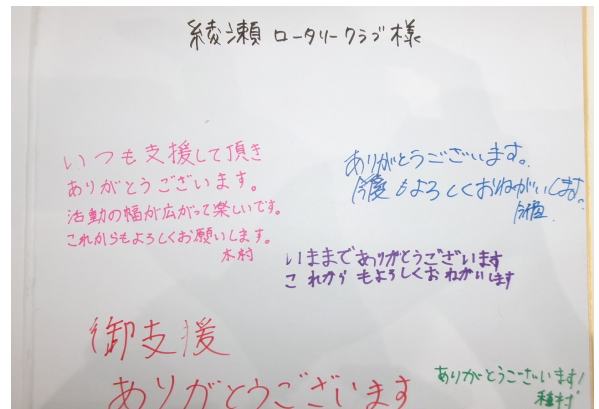 綾瀬 ロータリークラブ様
いつも支援して頂き
ありがとうございます。
活動の幅が広がって楽しいです。
これからもよろしくお願いします。
木村
ありがとうございます。
今度もよろしくおねがいします。
いままでありがとうございます
これからもよろしくおねがいします
御支援
ありがとうございます
ありがとうございます!
種村